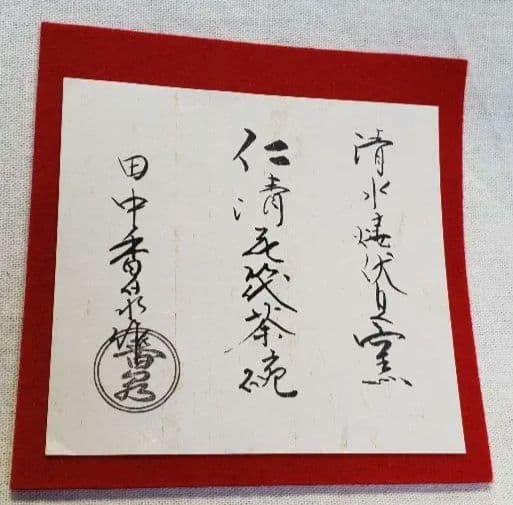 清水焼伏見窯
仁清花筏茶碗
田中香泉
香泉